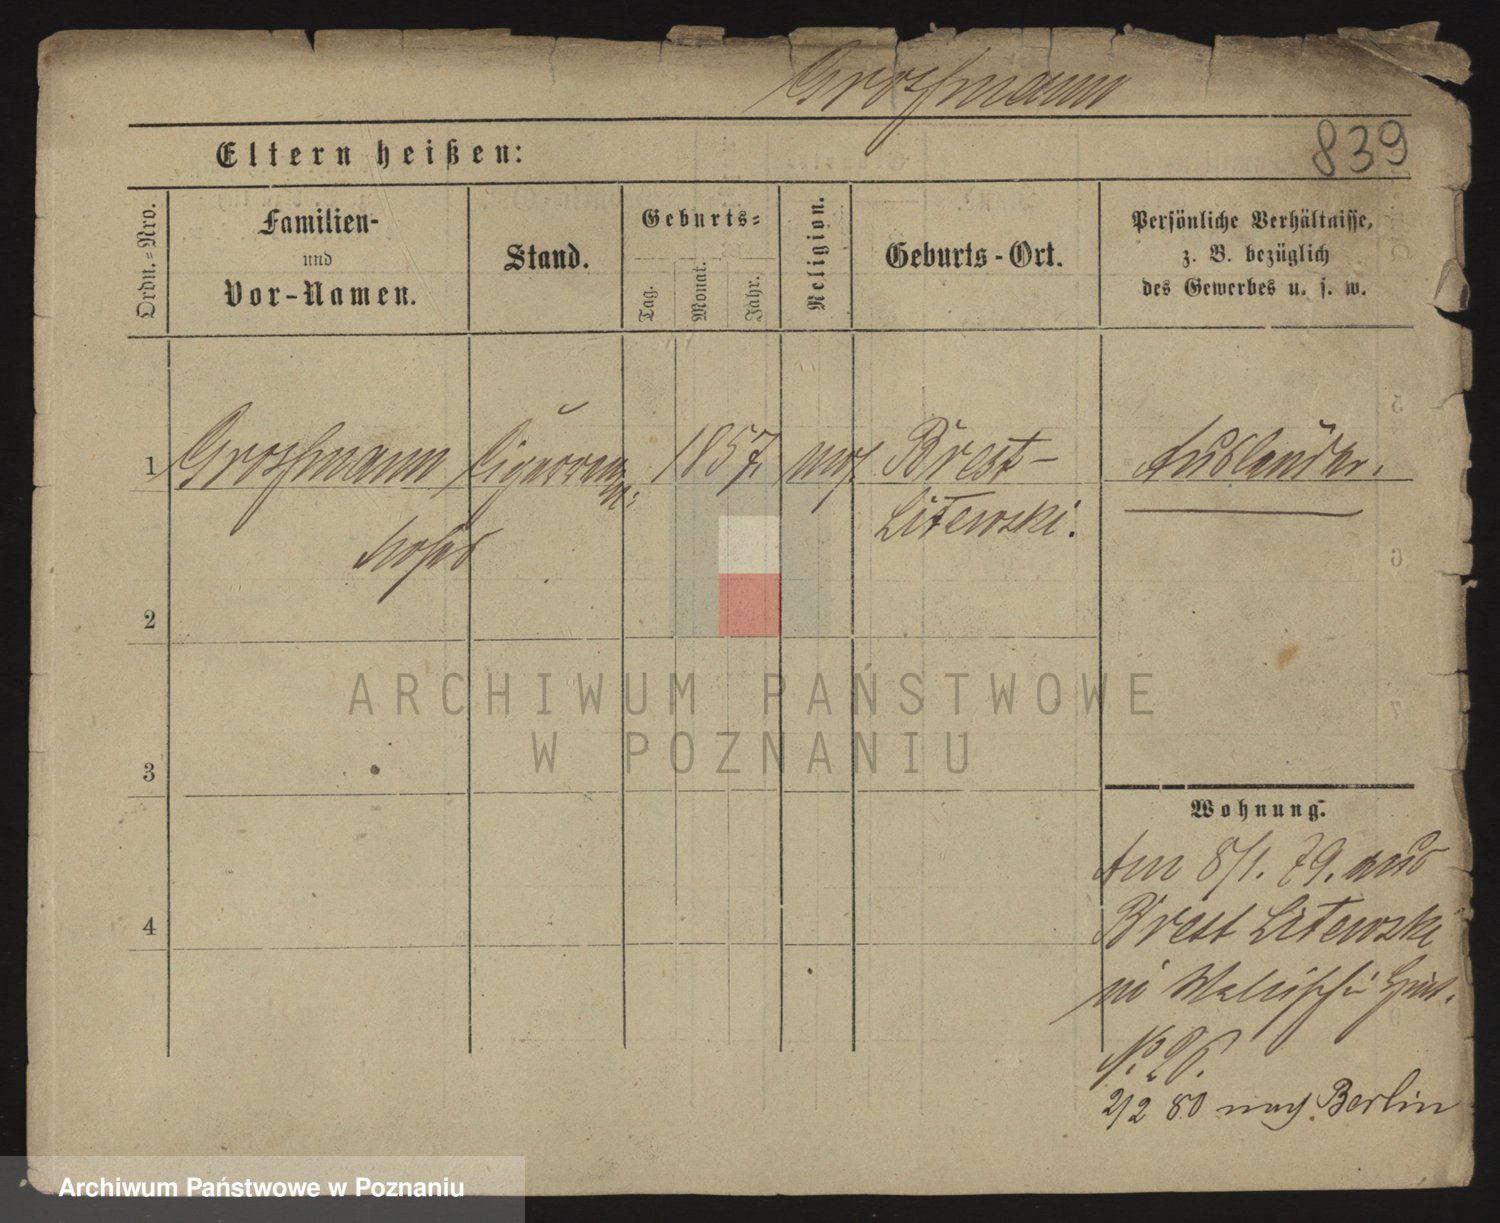 Großmann
839
Eltern heißen:
Ordn.=Nro.
Familien-
und
Vor-Namen.
Stand.
Geburts=
Tag.
Monat.
Jahr.
Religion.
Geburts-Ort.
Persönliche Verhältnisse,
z. B. bezüglich
des Gewerbes u. s. w.
1 Großmann 1857. mos. Brest- Ausländer.
Litewski.
2
3
4
Wohnung.
Am 8/1. 79. aus
Brest Litewski
No
2/2 80 nach Berlin
ARCHIWUM PAŃSTWOWE
W POZNANIU
Archiwum Państwowe w Poznaniu